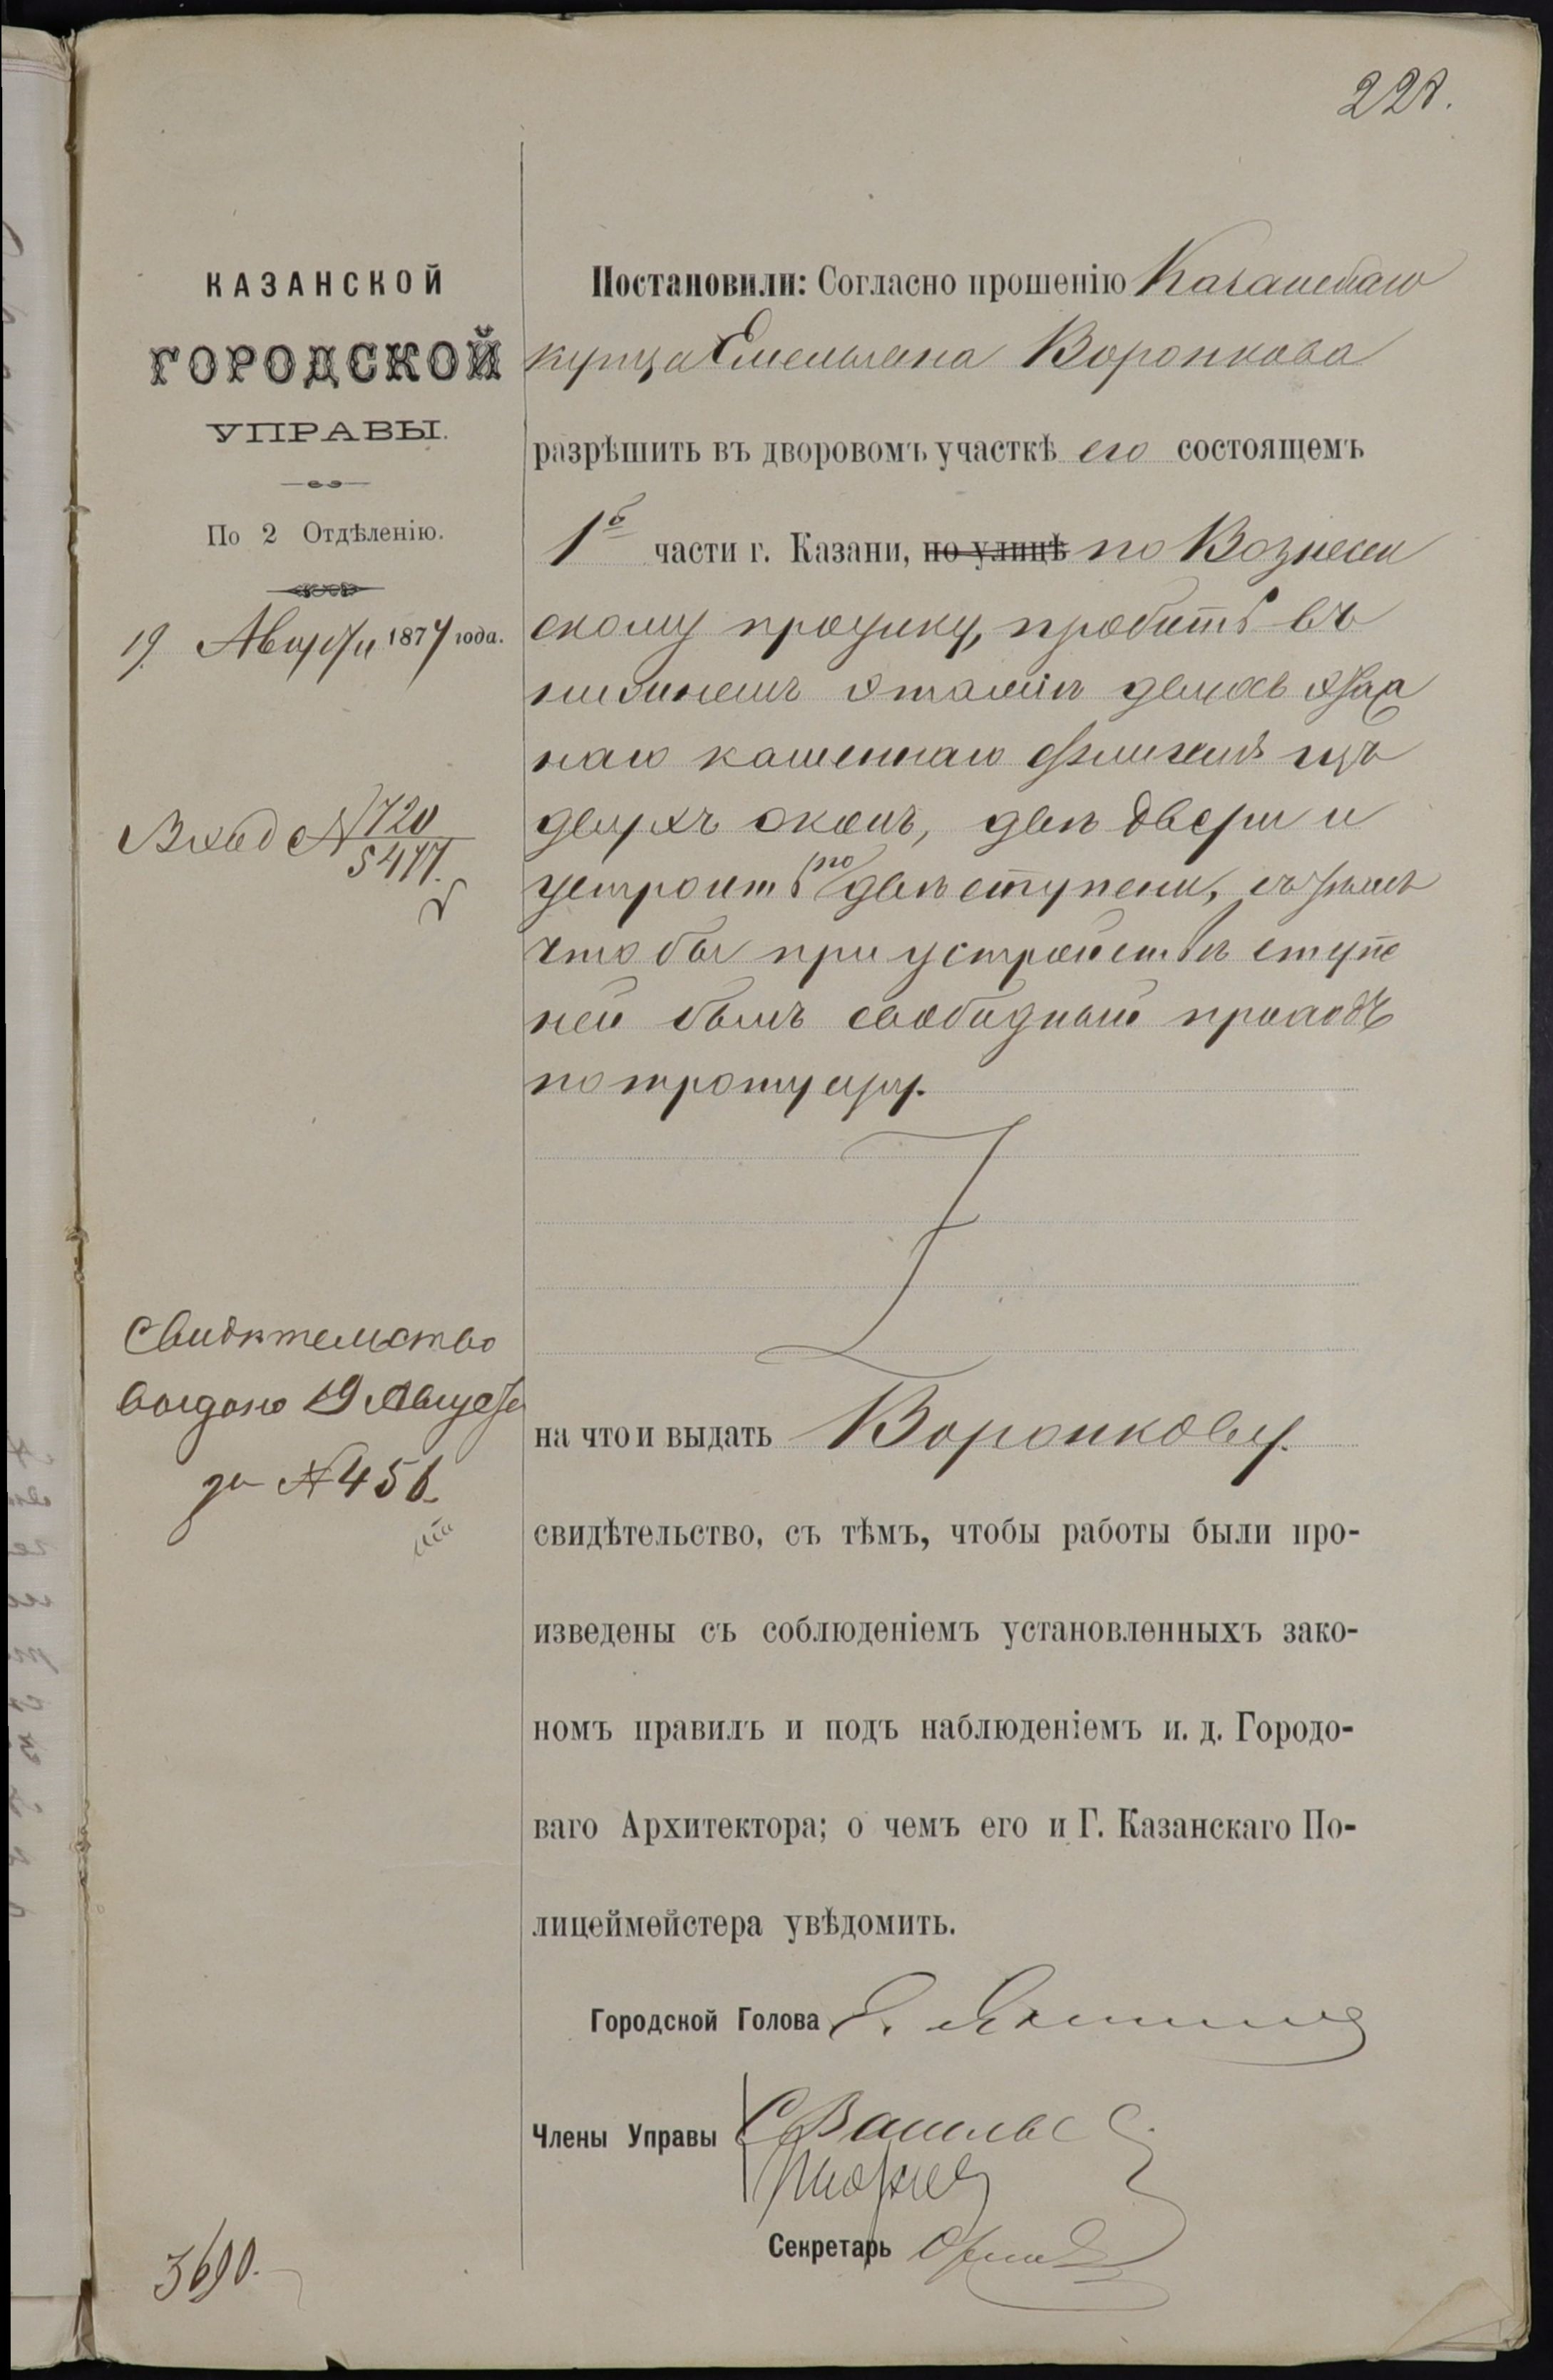 228.
КАЗАНСКОЙ
ГОРОДСКОЙ
УПРАВЫ.
По 2 Отдѣленію.
19 Августа 1877 года.
Вход № 720
5477.
Свидѣтельство
выдано 19 Августа
за № 456.
3690.
Постановили: Согласно прошенію Казанскаго
купца Емельяна Воронкова
разрѣшить въ дворовомъ участкѣ его состоящемъ
1й части г. Казани, по улицѣ по Вознесен
скому проулку, пробить въ
нижнемъ этажѣ двухъ этаж
наго каменнаго флигеля изъ
двухъ оконъ, двѣ двери и
устроить по двѣ ступени, съ тѣмъ
что бы при устройствѣ ступе
ней былъ свободный проходъ
по тротуару.
на что и выдать Воронкову.
свидѣтельство, съ тѣмъ, чтобы работы были про-
изведены съ соблюденіемъ установленныхъ зако-
номъ правилъ и подъ наблюденіемъ и. д. Городо-
ваго Архитектора; о чемъ его и Г. Казанскаго По-
лицеймейстера увѣдомить.
Городской Голова Э. Янишевс
Члены Управы
Секретарь